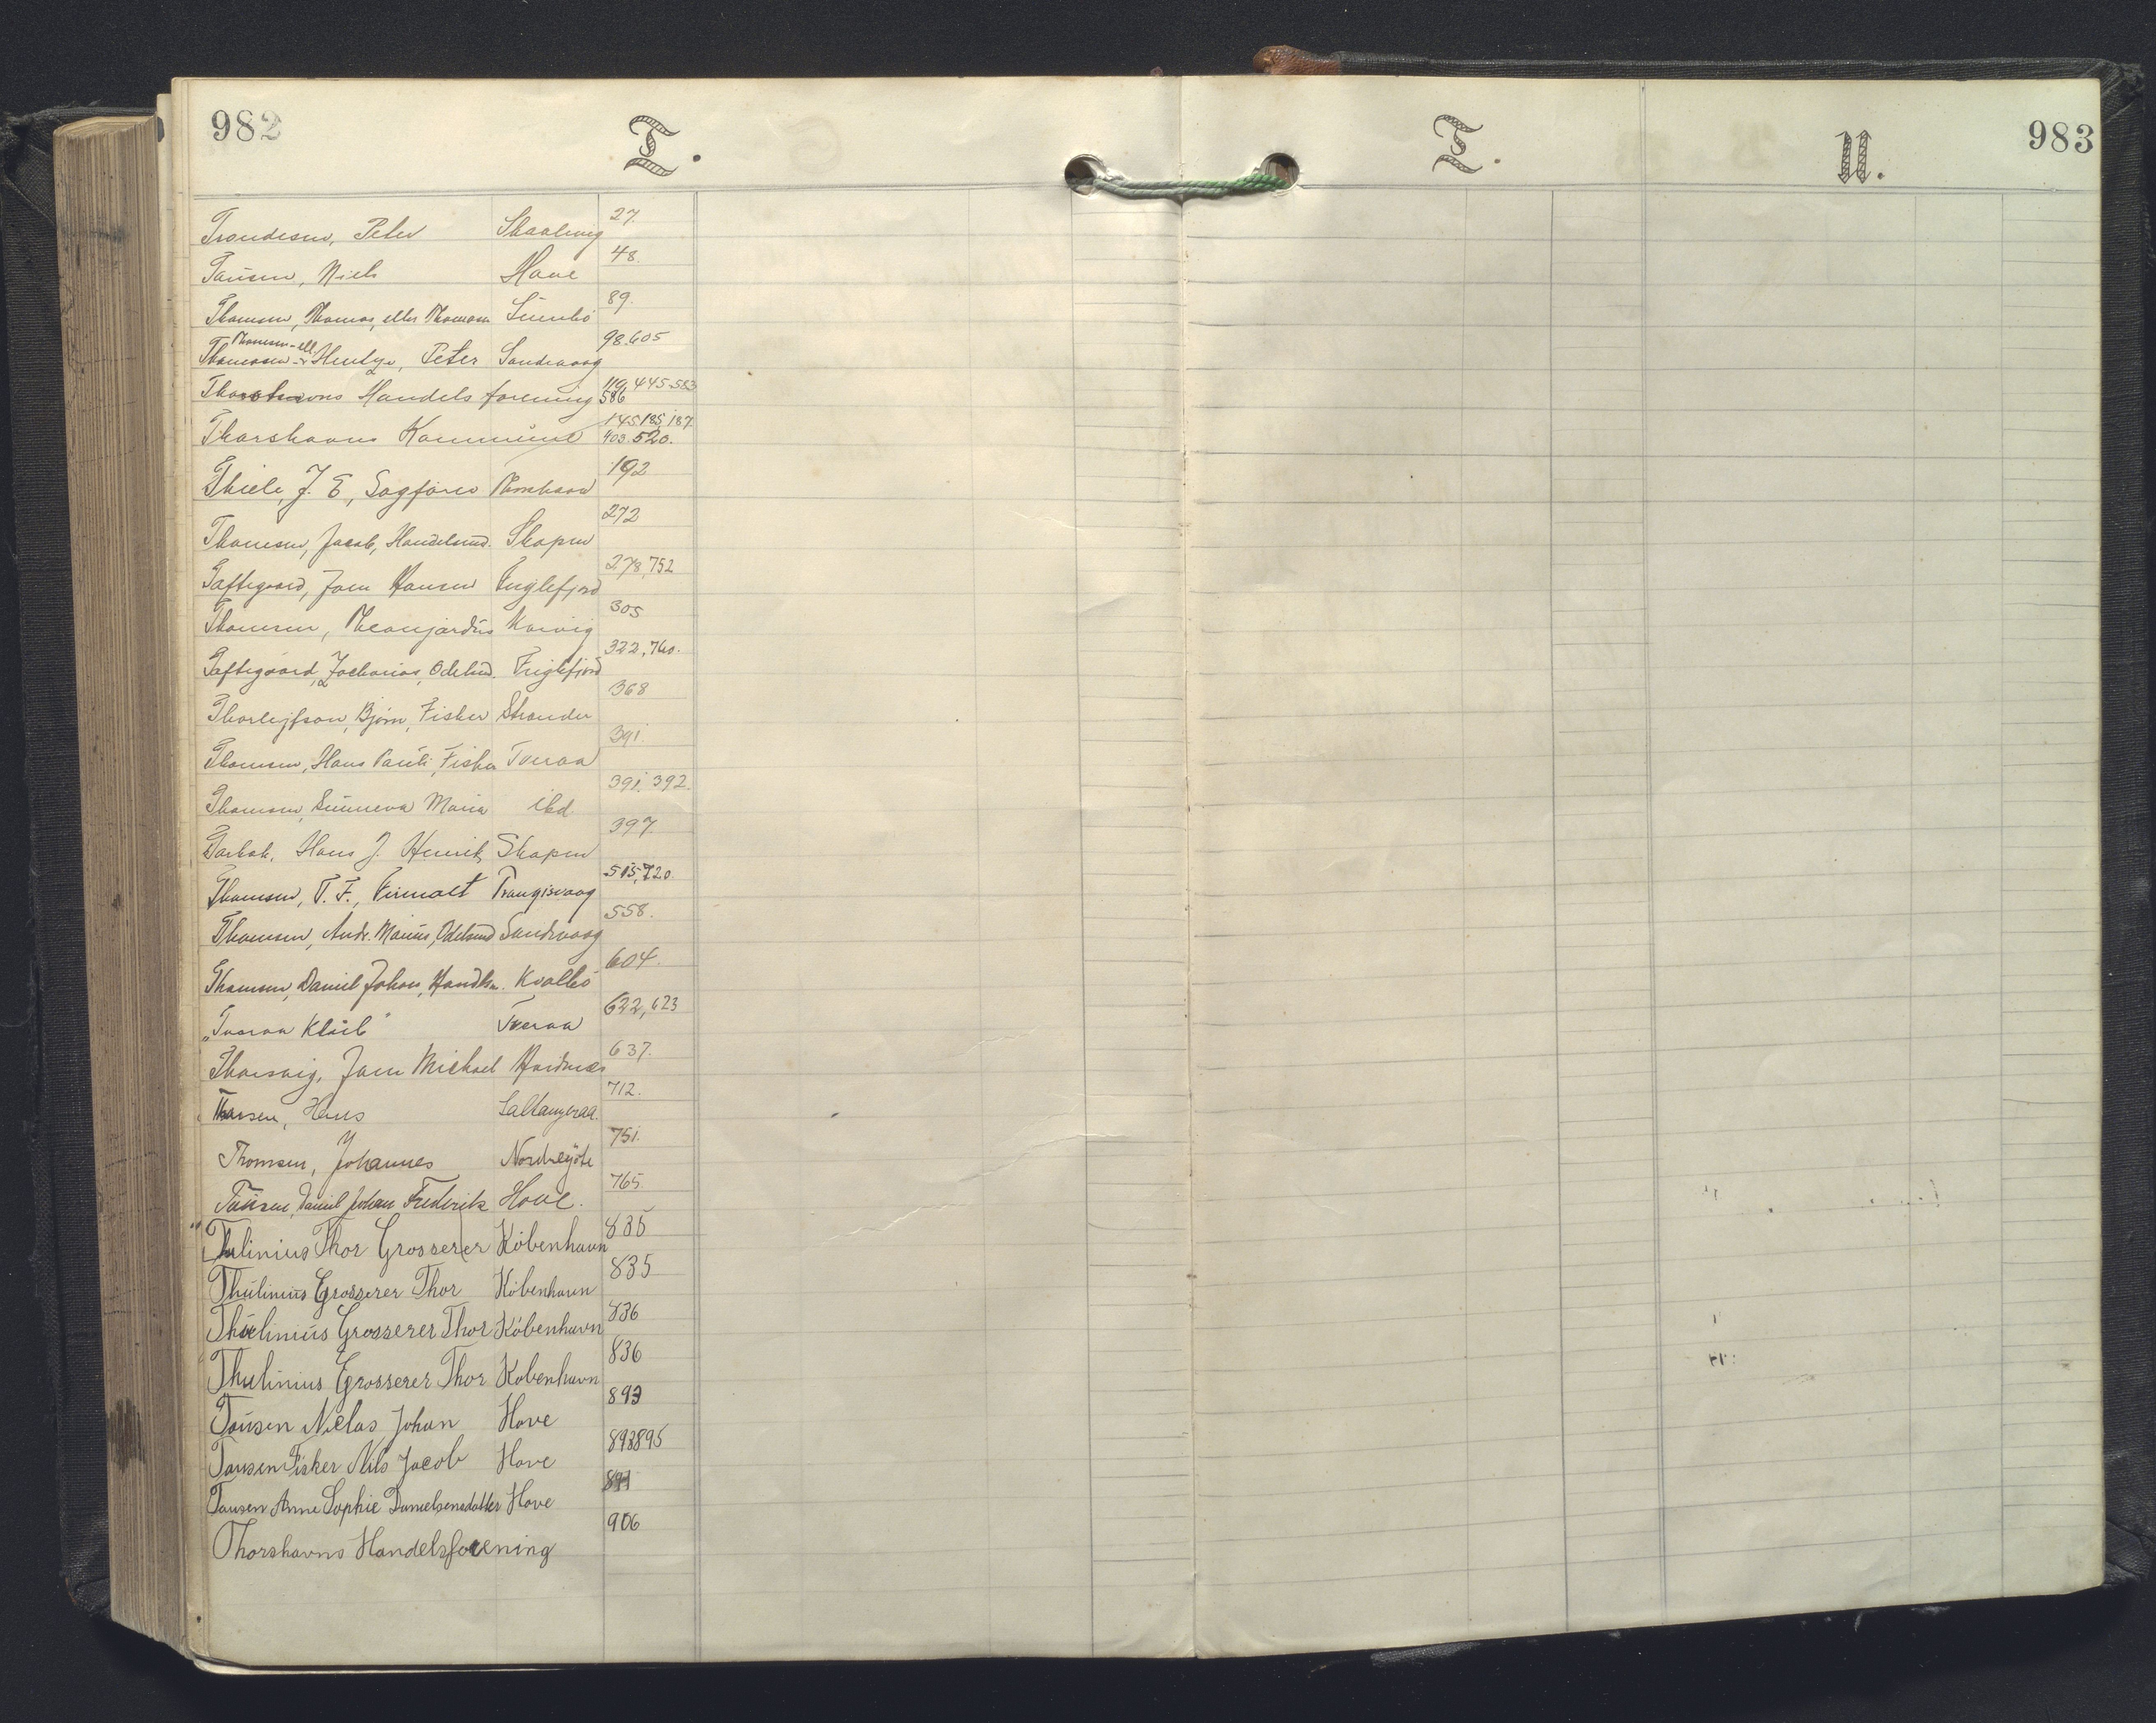 982
T.
Trondesen, Peter Skaaleveig 27.
Tausen, Niels Hove 48.
Thomsen, Thomas, eller Thomasen Sumbö 89.
Thomsen - ell.
Thomasen - Hentze, Peter Sandevaag 98.605
Thorshavns Handels forening 119,445.583
586
Thorshavns Kommune 145.185,187.
403.520.
Thiele, J. E, Sagförer Thorshavn 192
Thomsen, Jacob, Handelsmd. Skopun 272
Toftegaard, Joen Hansen Fuglefjord 278,752
Thomsen, Meonjardus Korvig 305
Toftegaard, Zacharias, Odelsmd. Fuglefjord 322,760.
Thorlejfson, Björn, Fisker Strender 368
Thomsen, Hans Pauli, Fisker Tveraa 391.
Thomsen, Sunneva Maria ibd. 391. 392.
Tarbak, Hans J. Henrik Skopun 397.
Thomsen, T. F., Firmaet Trangisvaag 515,720.
Thomsen, Andr. Marius, Odelsmd Sandvaag 558.
Thomsen, Daniel Johan, Handlm. Kvalbö 604.
„Tvøraa Klub" Tveraa 622,623
Thorsvig, Joen Michael Hoidvæs 637.
Thorsen, Hans Saltangeraa. 712.
Thomsen, Johannes Nordregöte 751.
Tausen, Daniel Johan Frederik Hove. 765.
Tulinius Thor Grosserer Köbenhavn 835
Thulinius Grosserer Thor Köbenhavn 835
Thulinius Grosserer Thor Köbenhavn 836
Thulinius Grosserer Thor Köbenhavn 836
Tausen Niclas Johan Hove 893
Tausen Fisker Nils Jacob Hove 893895
Tausen Anne Sophie Danielsensdatter Hove
Thorshavns Handelsforening 906
T.
U.
983